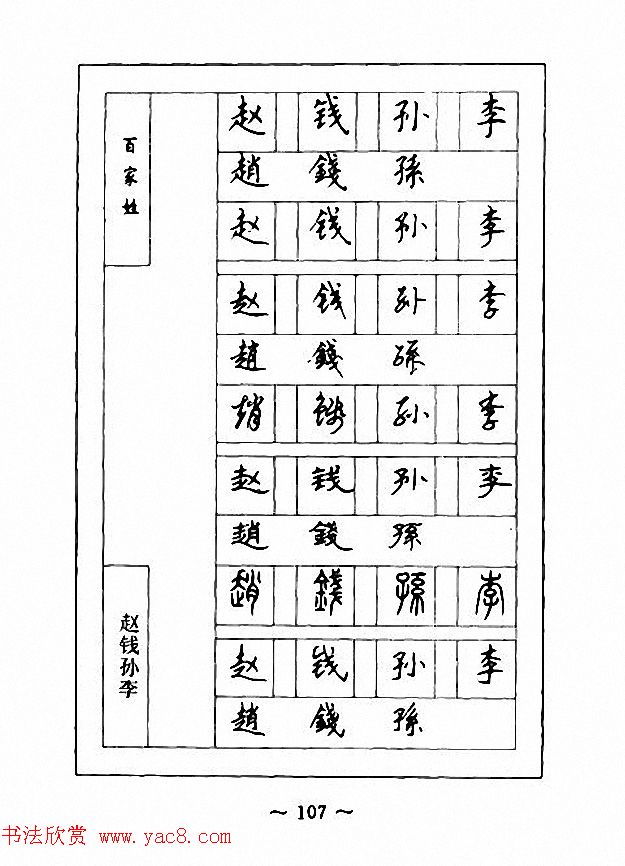 百家姓
赵 钱 孙 李
趙 錢 孫
赵 钱 孙 李
赵 钱 孙 李
趙 錢 孫
趙 錢 孙 李
赵 钱 孙 李
趙 錢 孫
趙 錢 孫 李
赵 钱 孙 李
趙 錢 孫
赵钱孙李
~ 107 ~
书法欣赏 www.yac8.com